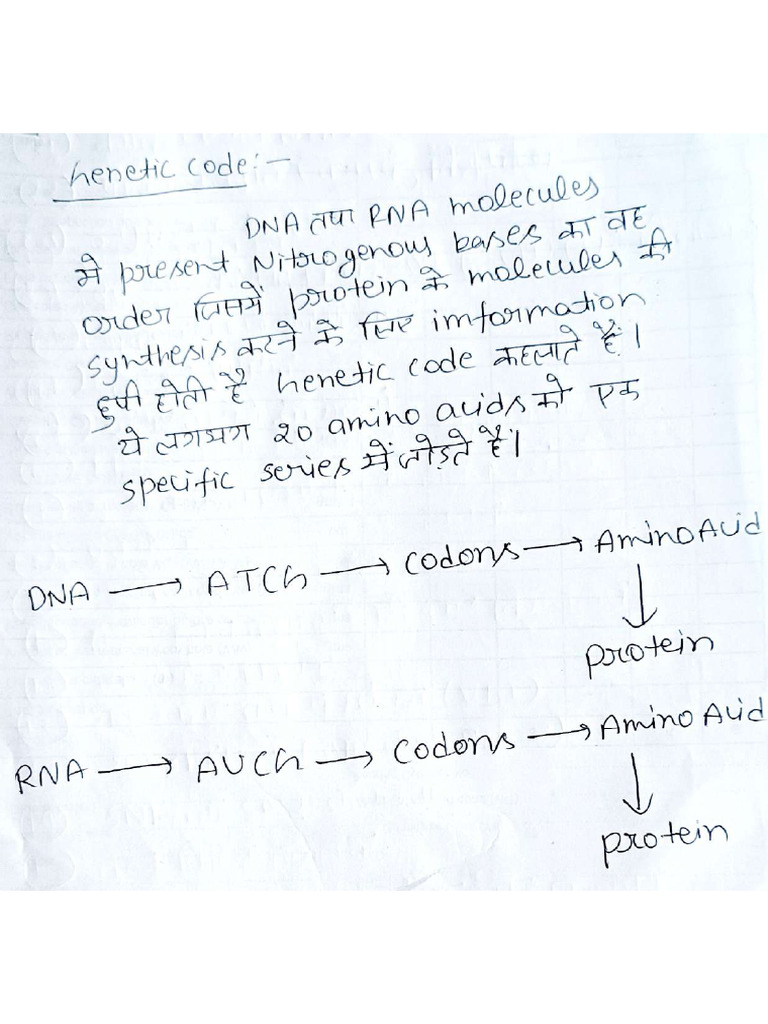 Genetic code:-
DNA तथा RNA molecules
मे present Nitrogenous bases का वह
order जिसमें protein के molecules की
synthesis करने के लिए imformation
छुपी होती है Genetic code कहलाते हैं।
ये लगभग 20 amino acids को एक
specific series में जोड़ते हैं।
DNA → ATCG → Codons → Amino Acid
↓
protein
RNA → AUCG → Codons → Amino Acid
↓
protein